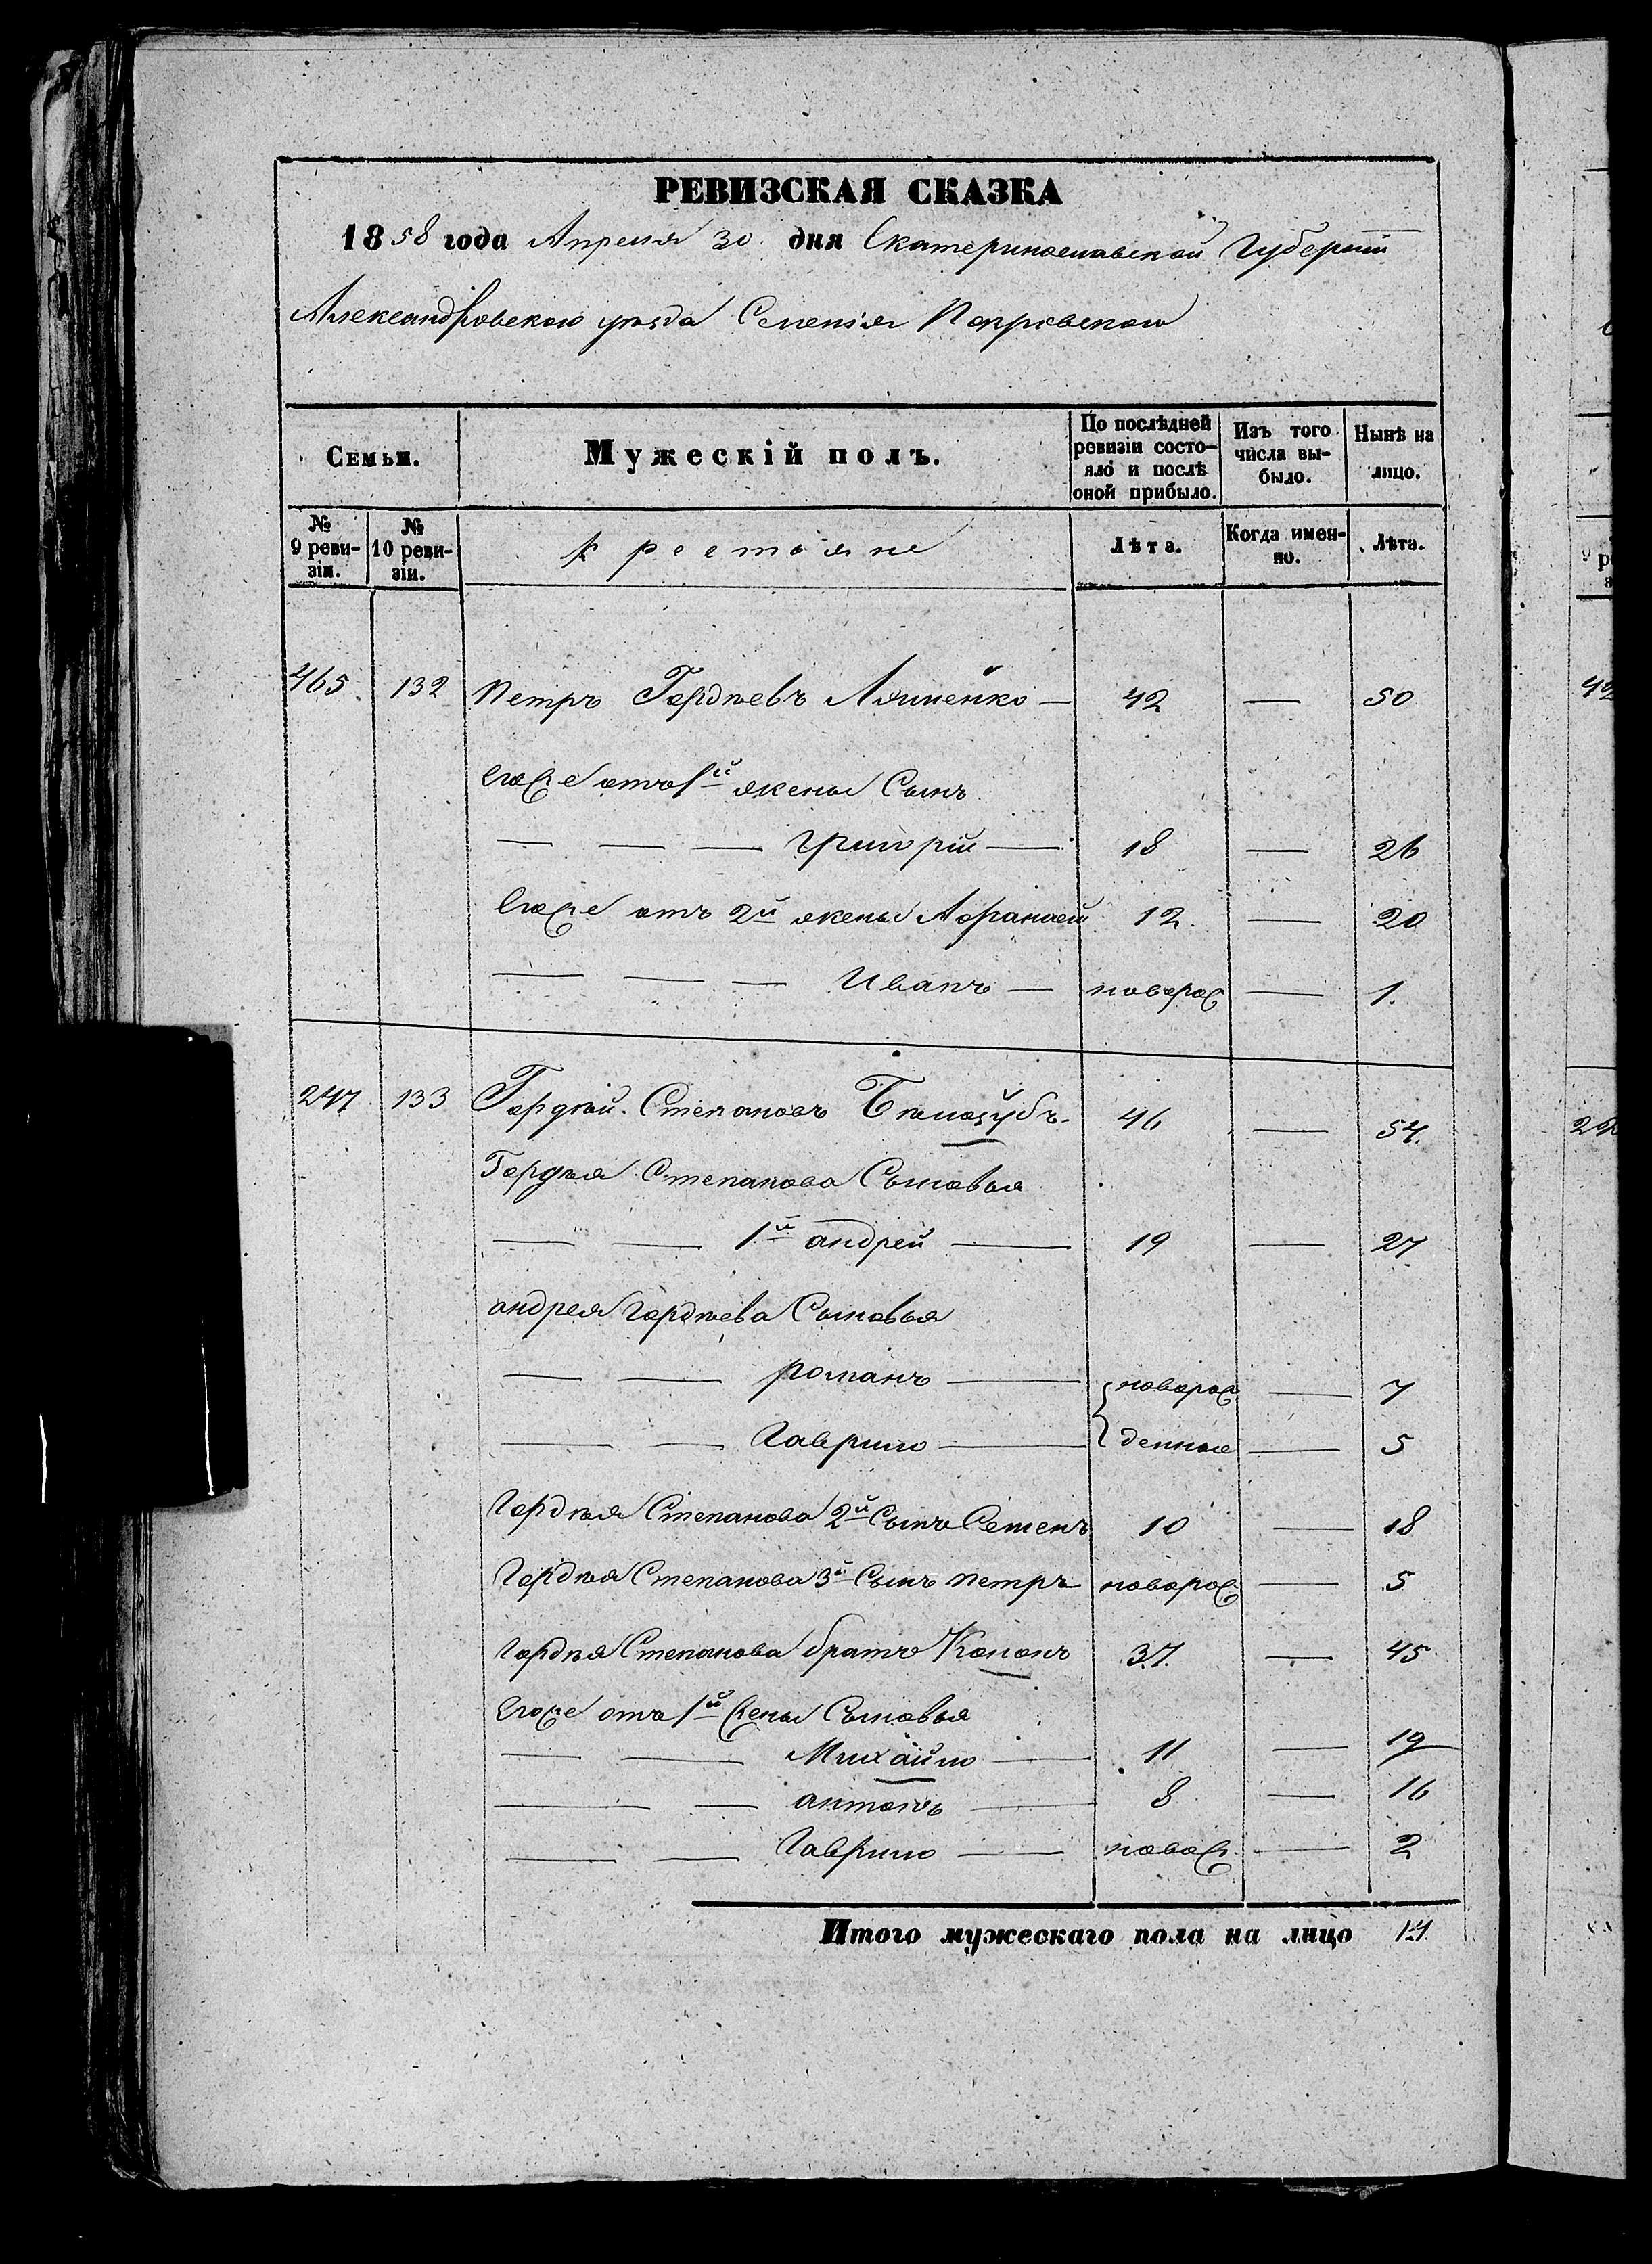 РЕВИЗСКАЯ СКАЗКА
1858 года Апреля 30 дня Екатеринославской Губернiи
Александровскаго уѣзда Селенiя Покровскаго
Семьи. Мужескiй полъ. По послѣдней ревизiи состояло и послѣ оной прибыло. Изъ того числа выбыло. Нынѣ на лицо.
№ 9 ревизiи. № 10 ревизiи. Крестьяне Лѣта. Когда именно. Лѣта.
465. 132 Петръ Гордѣевъ — 42 — 50
Егоже отъ 1й жены Сынъ
— — — Григорiй — 18 — 26
Егоже отъ 2й жены 12. — 20
— — — Иванъ — новорож — 1.
247. 133 Гордѣй Степановъ Бѣлозубъ. 46 — 54.
Гордѣя Степанова Сыновья
— — 1й андрей — 19 — 27
андрея Гордѣева Сыновья
— — романъ — новорож — 7
— — Гаврило — денные — 5
Гордѣя Степанова 2й Сынъ Семенъ 10 — 18
Гордѣя Степанова 3й Сынъ петръ новорож — 5
Гордѣя Степанова братъ Кононъ 37. — 45
Егоже отъ 1й Жены Сыновья
— — Михайло — 11 — 19
— — антонъ — 8 — 16
— — Гаврило — новож. — 2
Итого мужескаго пола на лицо 14
42
22